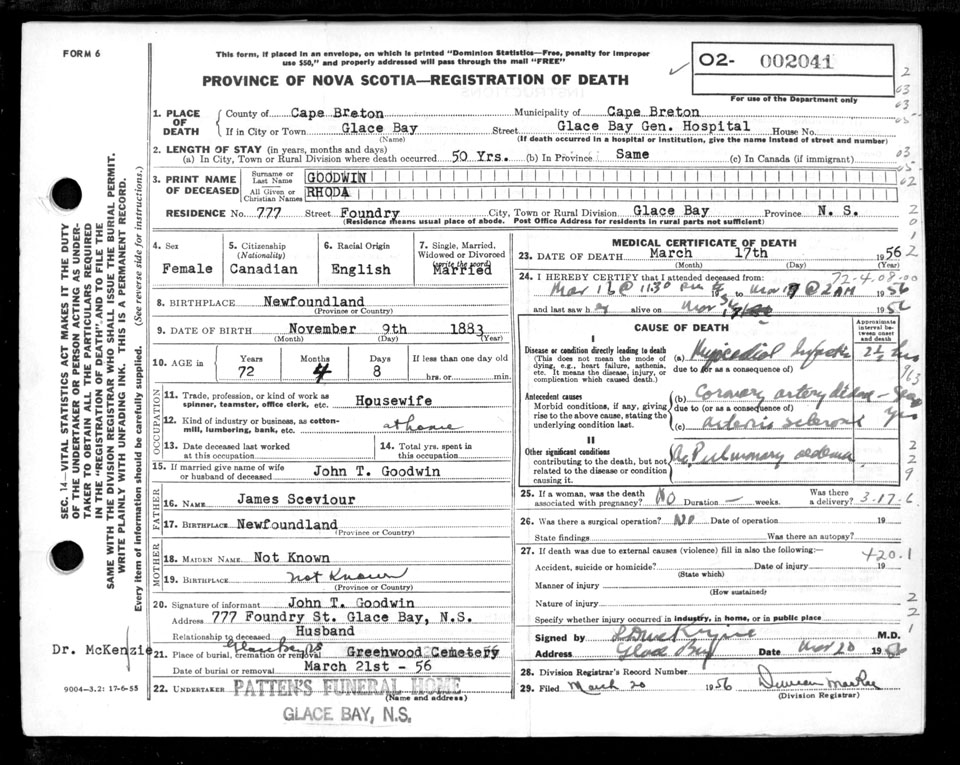 FORM 6
This form, if placed in an envelope, on which is printed "Dominion Statistics—Free, penalty for improper
use $50," and properly addressed will pass through the mail "FREE"
PROVINCE OF NOVA SCOTIA—REGISTRATION OF DEATH
O2- 002041
For use of the Department only
1. PLACE OF DEATH
County of Cape Breton Municipality of Cape Breton
If in City or Town Glace Bay Street Glace Bay Gen. Hospital House No.
(Name) (If death occurred in a hospital or institution, give the name instead of street and number)
2. LENGTH OF STAY (in years, months and days)
(a) In City, Town or Rural Division where death occurred 50 Yrs. (b) In Province Same (c) In Canada (if immigrant)
3. PRINT NAME OF DECEASED
Surname or Last Name GOODWIN
All Given or Christian Names RHODA
RESIDENCE No. 777 Street Foundry City, Town or Rural Division Glace Bay Province N. S.
(Residence means usual place of abode. Post Office Address for residents in rural parts not sufficient)
4. Sex
Female
5. Citizenship
(Nationality)
Canadian
6. Racial Origin
English
7. Single, Married, Widowed or Divorced
(write the word)
Married
8. BIRTHPLACE Newfoundland
(Province or Country)
9. DATE OF BIRTH November 9th 1883
(Month) (Day) (Year)
10. AGE in
Years Months Days If less than one day old
72 4 8 hrs. or min.
OCCUPATION
11. Trade, profession, or kind of work as
spinner, teamster, office clerk, etc. Housewife
12. Kind of industry or business, as cotton-
mill, lumbering, bank, etc. at home
13. Date deceased last worked
at this occupation
14. Total yrs. spent in
this occupation
15. If married give name of wife
or husband of deceased John T. Goodwin
FATHER
16. NAME James Sceviour
17. BIRTHPLACE Newfoundland
(Province or Country)
MOTHER
18. MAIDEN NAME Not Known
19. BIRTHPLACE not Known
(Province or Country)
20. Signature of informant John T. Goodwin
Address 777 Foundry St. Glace Bay, N.S.
Relationship to deceased Husband
Dr. McKenzie
21. Place of burial, cremation or removal Glace Bay NS Greenwood Cemetery
Date of burial or removal March 21st - 56
22. UNDERTAKER PATTEN'S FUNERAL HOME
(Name and address)
GLACE BAY, N.S.
9004—3.2: 17-6-55
MEDICAL CERTIFICATE OF DEATH
23. DATE OF DEATH March 17th 1956
(Month) (Day) (Year)
72-4.08-00
24. I HEREBY CERTIFY that I attended deceased from:
Mar 16 @ 11:30 pm 1956 to Mar 17 @ 2 AM 1956
and last saw h alive on Mar 17 1956
CAUSE OF DEATH
Approximate interval between onset and death
I
Disease or condition directly leading to death
(This does not mean the mode of
dying, e.g., heart failure, asthenia,
etc. It means the disease, injury, or
complication which caused death.)
(a) 2½ hrs
due to (or as a consequence of)
Antecedent causes
Morbid conditions, if any, giving
rise to the above cause, stating the
underlying condition last.
(b) Coronary artery disease
due to (or as a consequence of)
(c) arterio sclerosis
II
Other significant conditions
contributing to the death, but not
related to the disease or condition
causing it.
Ac. Pulmonary oedema
25. If a woman, was the death
associated with pregnancy? NO Duration — weeks. Was there
a delivery? 3-17-6
26. Was there a surgical operation? No Date of operation 19
State findings Was there an autopsy?
27. If death was due to external causes (violence) fill in also the following:—
420.1
Accident, suicide or homicide? Date of injury 19
(State which)
Manner of injury
(How sustained)
Nature of injury
Specify whether injury occurred in industry, in home, or in public place
Signed by M.D.
Address Glace Bay Date Mar 20 1956
28. Division Registrar's Record Number
29. Filed March 20 1956 Duncan
(Division Registrar)
SEC. 14—VITAL STATISTICS ACT MAKES IT THE DUTY
OF THE UNDERTAKER OR PERSON ACTING AS UNDER-
TAKER TO OBTAIN ALL THE PARTICULARS REQUIRED
IN THE "REGISTRATION OF DEATH" AND TO FILE THE
SAME WITH THE DIVISION REGISTRAR WHO SHALL ISSUE THE BURIAL PERMIT.
WRITE PLAINLY WITH UNFADING INK. THIS IS A PERMANENT RECORD.
Every item of information should be carefully supplied. (See reverse side for instructions.)